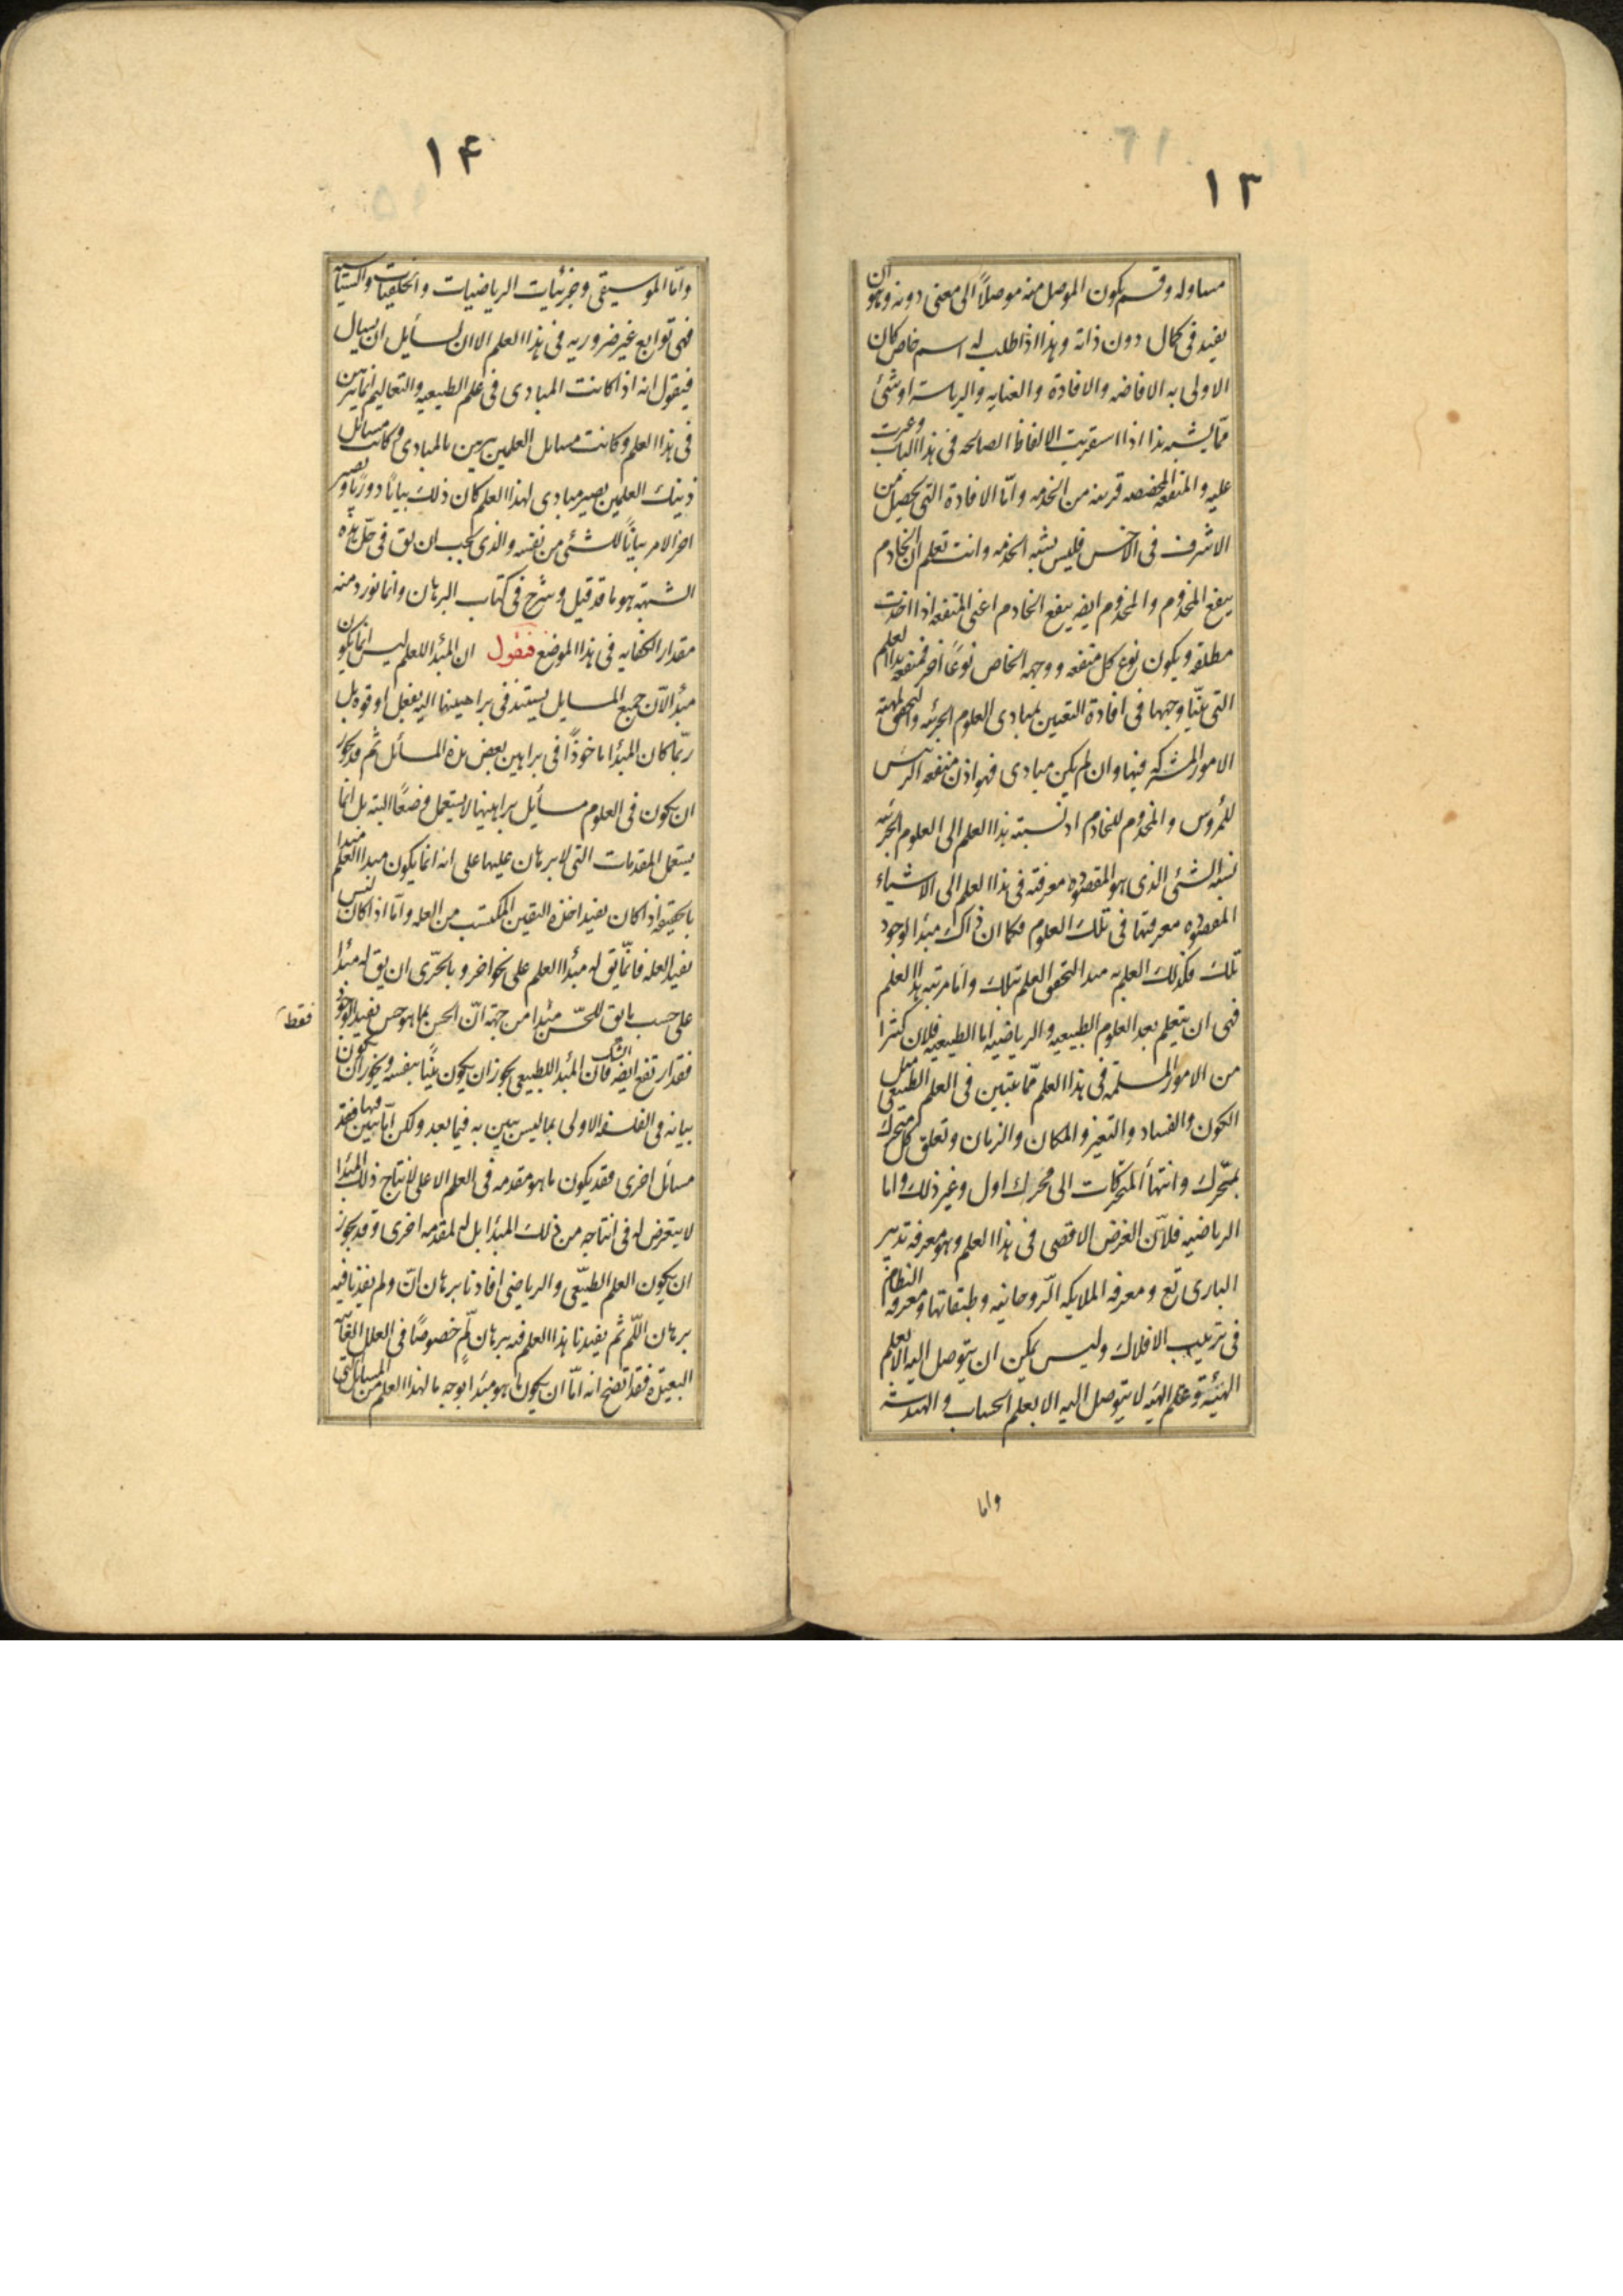 ١٣
مساو له وقسم يكون الموصل منه موصلاً الى معنى دونه وهو ان
يفيد فى كمال دون ذاته وهذا اذا طلب له اسم خاص كان
الاولى به الافاضه والافادة والعنايه والرياسة او شئ
مما يشبه هذا اذا استقريت الالفاظ الصالحه فى هذا الباب وعبرت
عليه والمنفعة المخصصه قريبه من الخدمه وامّا الافادة التى يحصل من
الاشرف فى الاخس فليس يشبه الخدمه وانت تعلم ان الخادم
ينفع المخدوم والمخدوم ايضه ينفع الخادم اعنى المنفعه اذا اخذت
مطلقه ويكون نوع كل منفعه ووجهه الخاص نوعًا اخر فمنفعه هذا العلم
التى بيّنا وجهها فى افادة اليقين بمبادى العلوم الجزئيه والتحقق لمهيّة
الامور المشتركه فيها وان لم يكن مبادى فهو اذن منفعه الرئيس
للمرؤس والمخدوم للخادم اذ نسبته هذا العلم الى العلوم الجزئيه
نسبة الشئ الذى هو المقصوده معرفته فى هذا العلم الى الاشياء
المقصوده معرفتها فى تلك العلوم فكما ان ذاك مبدأ لوجود
تلك فكذلك العلم به مبدا لتحقق العلم بتلك وامّا مرتبة هذا العلم
فهى ان يتعلم بعد العلوم الطبيعيه والرياضيه اما الطبيعيه فلان كثيرا
من الامور المسلّمه فى هذا العلم ممّا يتبين فى العلم الطبيعى مثل
الكون والفساد والتغيز والمكان والزمان وتعلق كل متحرك
بمتحّرك وانتهأ المتحركات الى محرك اول وغير ذلك واما
الرياضيه فلانّ الغرض الاقصى فى هذا العلم وهو معرفه تدبير
البارى تع ومعرفه الملايكه الرّوحانيه وطبقاتها ومعرفة النظام
فى ترتيب الافلاك وليس يمكن ان يتوصل اليه الا بعلم
الهيئة وعلم الهيئه لا يتوصل اليه الا بعلم الحساب والهندسة
واما
١۴
وامّا الموسيقى وجزئيات الرياضيات والخلقيات والسياسية
فهى توابع غير ضروريه فى هذا العلم الا ان لسائل ان يسال
فيقول انه اذا كانت المبادى فى علم الطبيعيه والتعاليم انما يتبرهن
فى هذا العلم وكانت مسائل العلمين يبرهن بالمبادى وكانت مسائل
ذينك العلمين يصير مبادى لهذا العلم كان ذلك بيانًا دوريًا ويصير
اخر الامر بيانًا للشئ من نفسه والذى يجب ان يق فى حلّ هذه
الشبهة هو ما قد قيل وشرح فى كتاب البرهان وانما نورد منه
مقدار الكفايه فى هذا الموضع فنقول ان المبدا للعلم ليس انما يكون
مبدأ لانّ جميع المسايل يستند فى براهينها اليه بفعل او قوه بل
ربّما كان المبدأ ماخوذًا فى براهين بعض هذه المسائل ثم قد يجوز
ان يكون فى العلوم مسايل براهينها لا يستعمل وضعًا البته بل انما
يستعمل المقدمات التى لا برهان عليها على انه انما يكون مبدأ العلم مبدا
بالحقيقه اذا كان يفيد اخذه اليقين المكتسب من العله وامّا اذا كان ليس
يفيد العله فانمّا يق له مبدأ العلم على نحو اخر وبالحرّى ان يق له مبدأ
على حسب ما يق للحسّ مبدا من جهة انّ الحس بما هو حس يفيد الوجود
فقط
فقد ارتفع ايضه الشك فان المبدا للطبيعى يجوز ان يكون بيّنًا بنفسه ويجوز ان يكون
بيانه فى الفلسفه الاولى بما ليس يبين به فيما بعد ولكن انّما يبين فيها فقد
مسائل اخرى فقد يكون ما هو مقدمه فى العلم الاعلى لانتاج ذلك المبدا
لا يتعرض له فى انتاجه من ذلك المبدا بل له لمقدمه اخرى وقد يجوز
ان يكون العلم الطبيّعى والرياضى افادنا برهان انّ ولم يفدنا فيه
برهان اللّم ثم يفيدنا هذا العلم فيه برهان لم خصوصًا فى العلل الغائيه
البعيدة فقد اتضح انه امّا ان يكون ما هو مبدا بوجه ما لهذا العلم من المسائل التى